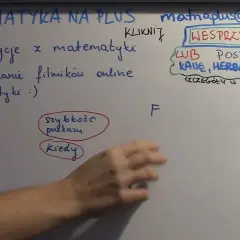 MATYKA NA PLUS
matnaplus
KLIKNIJ
WESPRZ
LUB POS
KAWĘ, HERB
SZCZEGÓŁY W
cje z matematyki
anie filmików online
tyki :)
szybkość
kiedy
F